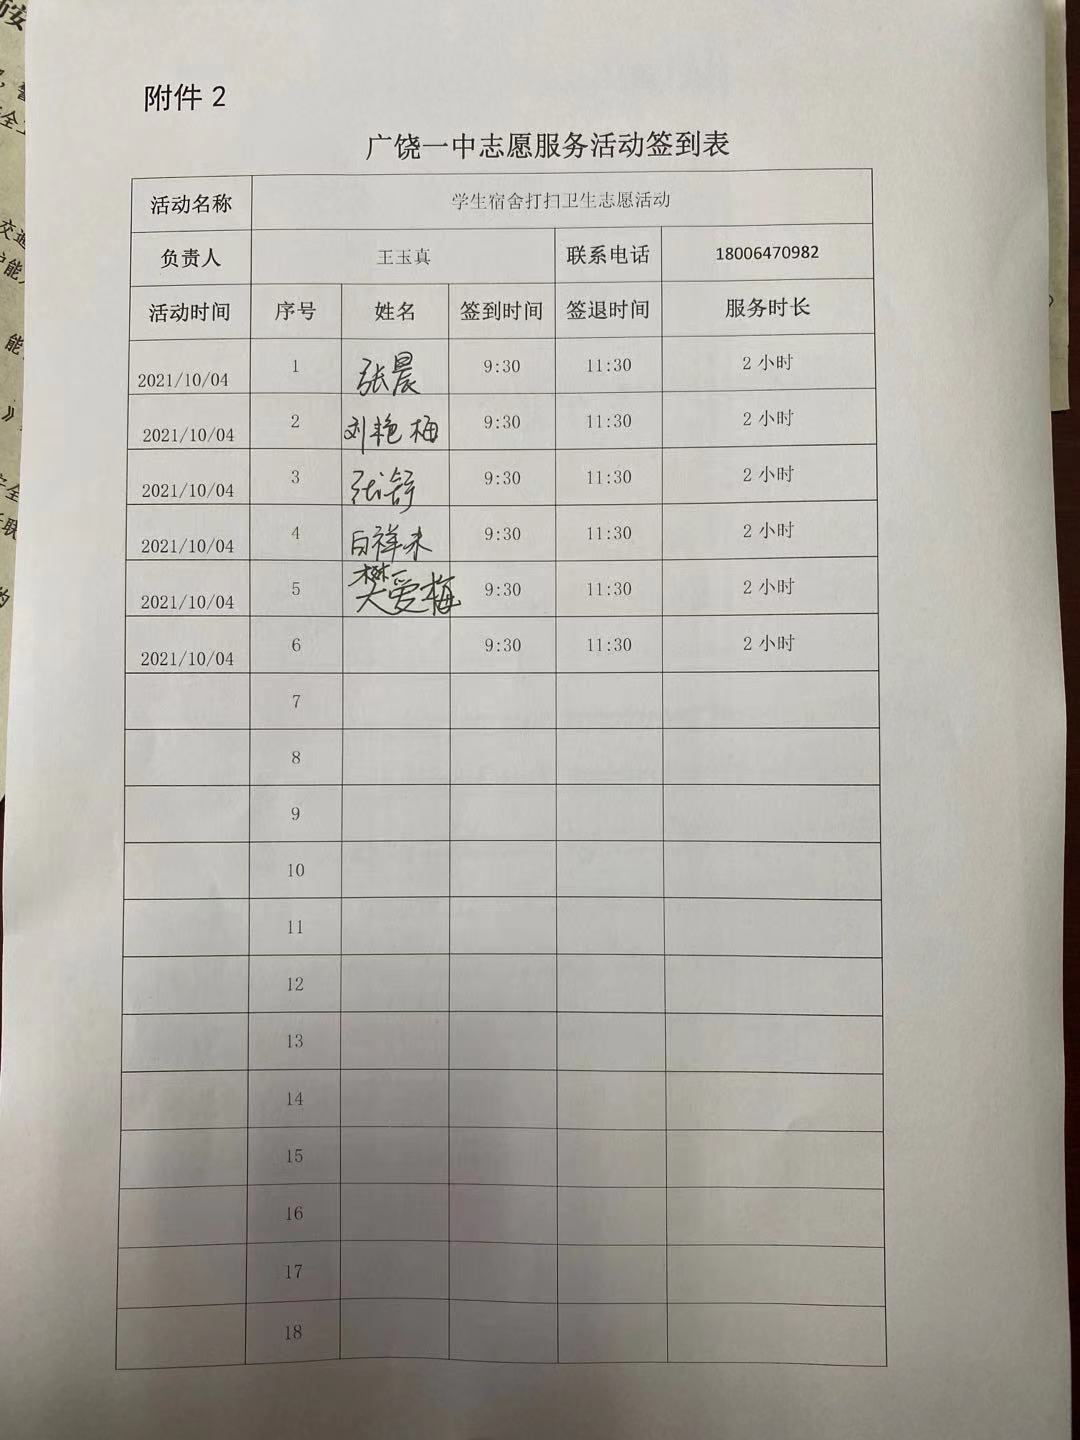 附件 2
广饶一中志愿服务活动签到表
活动名称 学生宿舍打扫卫生志愿活动
负责人 王玉真 联系电话 18006470982
活动时间 序号 姓名 签到时间 签退时间 服务时长
2021/10/04 1 张晨 9:30 11:30 2 小时
2021/10/04 2 刘艳梅 9:30 11:30 2 小时
2021/10/04 3 张舒 9:30 11:30 2 小时
2021/10/04 4 白祥来 9:30 11:30 2 小时
2021/10/04 5 樊爱梅 9:30 11:30 2 小时
2021/10/04 6 9:30 11:30 2 小时
7
8
9
10
11
12
13
14
15
16
17
18